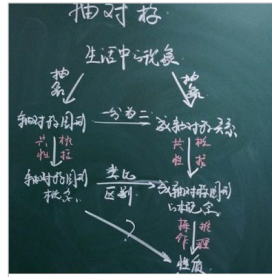 轴对称
生活中的现象
抽象 抽象
轴对称图形 一分为二 成轴对称关系
共性 共性
轴对称图形概念 类比区别 成轴对称图形的概念
? 操作 推理
性质